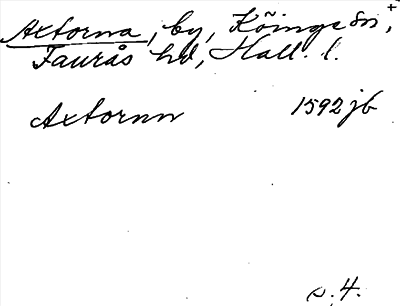 Axtorna, by, Köinge sn, +
Faurås hd, Hall. l.
Axtornn 1592 jb
s. 4.